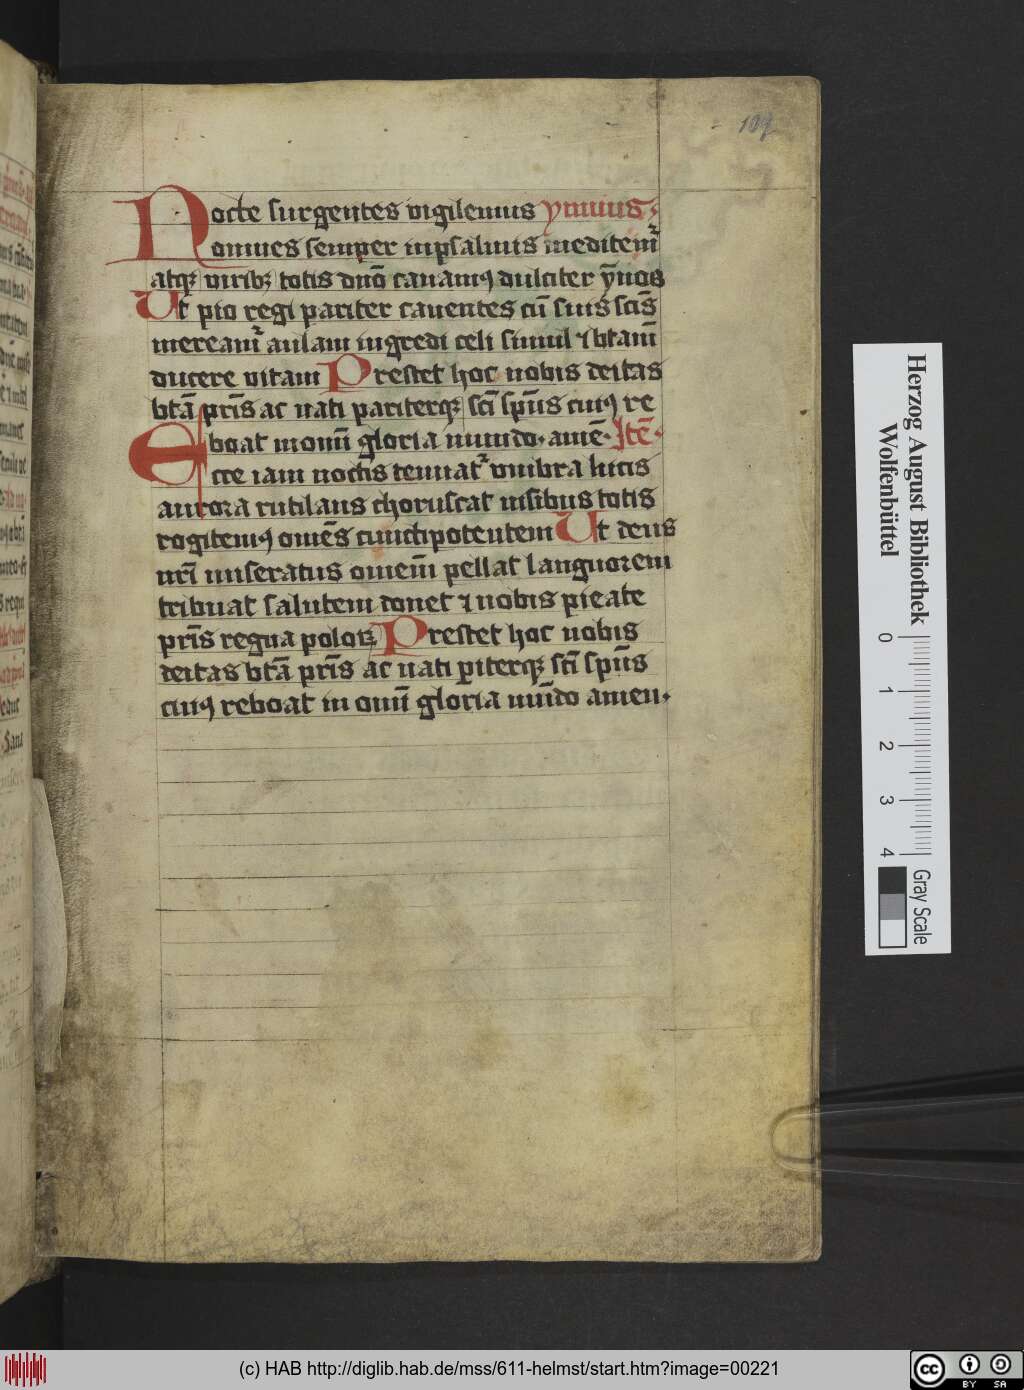 Nocte surgentes vigilemus ymnus
omnes semper inpsalmis meditem᷑
atqꝫ viribꝫ totis dn̄o canamꝰ dulciter ȳnos
Ut pio regi pariter canentes cū suis sc̄is
meream᷑ aulam ingredi celi simul ⁊ bt̄am̄
ducere vitam Prestet hoc nobis deitas
bt̄a pr̄is ac nati pariterqꝫ sc̄i sp̄us cuiꝰ re
boat in om̄i gloria mundo· amē· Itē·
Ecce iam noctis tenuat᷑ vmbra lucis
aurora rutilans choruscat nisibus totis
rogitemꝰ omēs cunctipotentem Ut deus
nr̄i miseratus omem̄ pellat languorem
tribuat salutem donet ⁊ nobis pieate
pr̄is regna poloꝝ Prestet hoc nobis
deitas bt̄a pr̄is ac nati p̄iterqꝫ sc̄i sp̄us
cuiꝰ reboat in om̄i gloria mūdo amen·
Herzog August Bibliothek
Wolfenbüttel
0 1 2 3 4
Gray Scale
(c) HAB http://diglib.hab.de/mss/611-helmst/start.htm?image=00221
cc BY SA